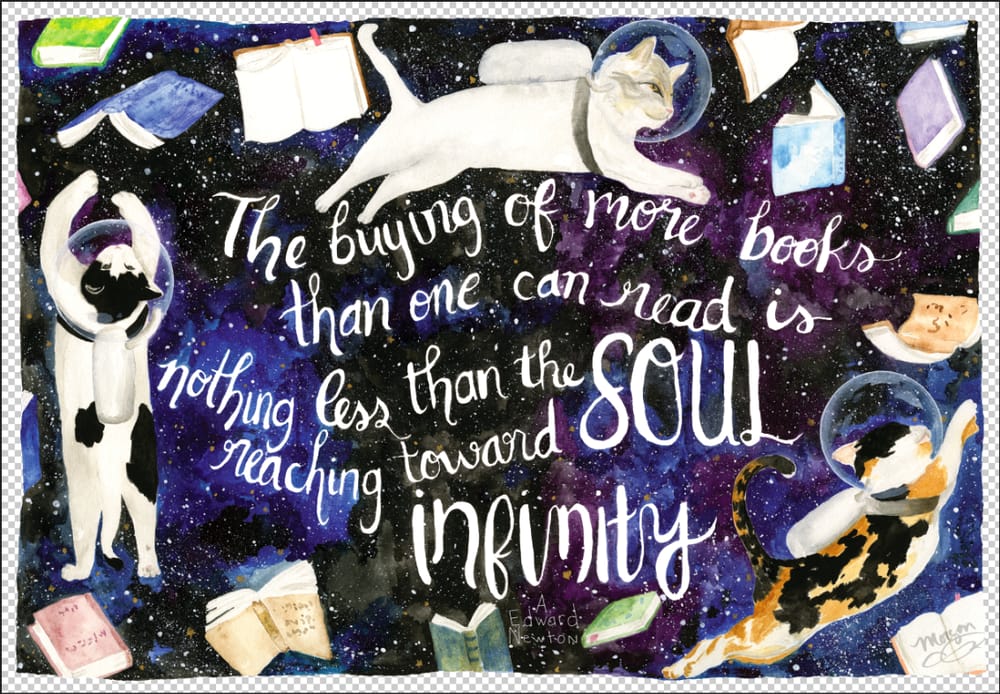 The buying of more books
than one can read is
nothing less than the SOUL
reaching toward
infinity
A
Edward
Newton